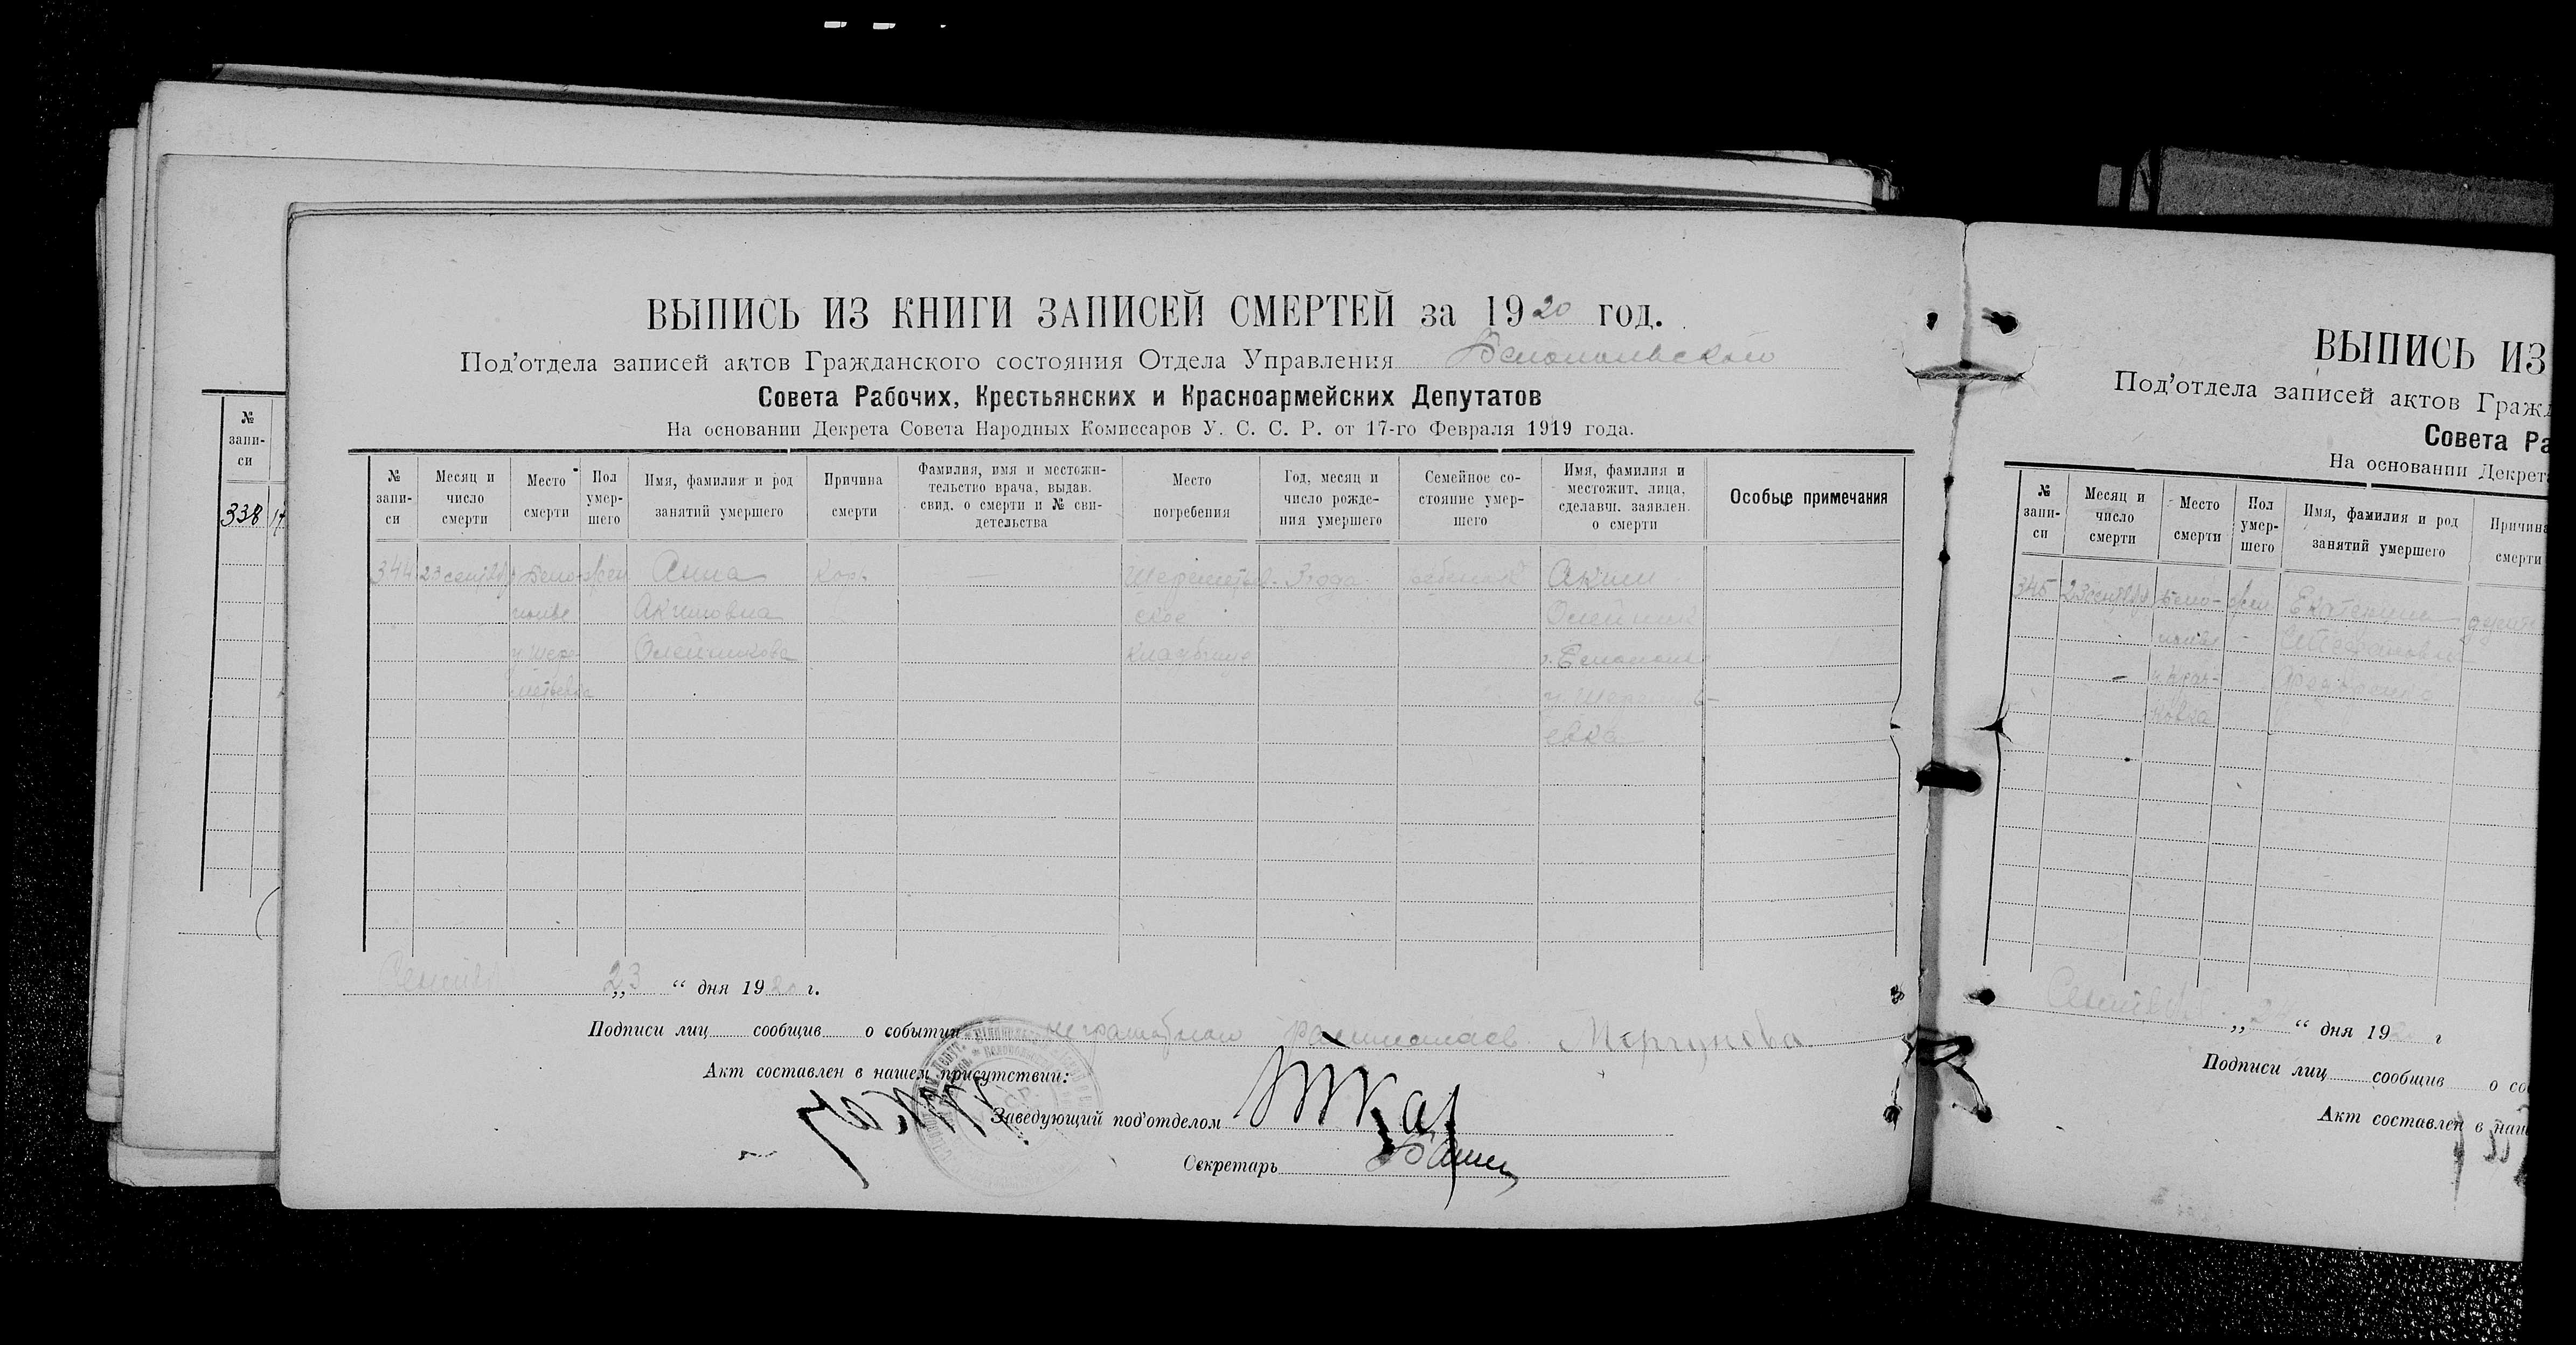 ВЫПИСЬ ИЗ КНИГИ ЗАПИСЕЙ СМЕРТЕЙ за 1920 год.
Под'отдела записей актов Гражданского состояния Отдела Управления Белопольского
Совета Рабочих, Крестьянских и Красноармейских Депутатов
На основании Декрета Совета Народных Комиссаров У. С. С. Р. от 17-го Февраля 1919 года.
№ запи-си
Месяц и число смерти
Место смерти
Пол умер-шего
Имя, фамилия и род занятий умершего
Причина смерти
Фамилия, имя и местожи-тельство врача, выдав. свид. о смерти и № сви-детельства
Место погребения
Год, месяц и число рожде-ния умершего
Семейное со-стояние умер-шего
Имя, фамилия и местожит. лица, сделавш. заявлен. о смерти
Особые примечания
344 23 сентбр Бело- жен Анна Кор. — Шереметьев- 3 года ребенок Аким
полье Акимовна ское Олейник
у. Шере- Олейникова кладбище г. Белополье
метьевка
евка
23 “ дня 1920 г.
Подписи лиц сообщив о событии неграмотного расписалась Моргунова
Акт составлен в нашем присутствии:
Заведующий под'отделом
Секретарь
№ запи-си
338 17
ВЫПИСЬ ИЗ
Под'отдела записей актов Гражд
Совета Ра
На основании Декрет
№ запи-си
Месяц и число смерти
Место смерти
Пол умер-шего
Имя, фамилия и род занятий умершего
Причина смерти
345 23 сентбр Бело- жен Екатерина
полье Стефановна
новка
Сентября 24 “ дня 192 г
Подписи лиц сообщив о со
Акт составлен в наш